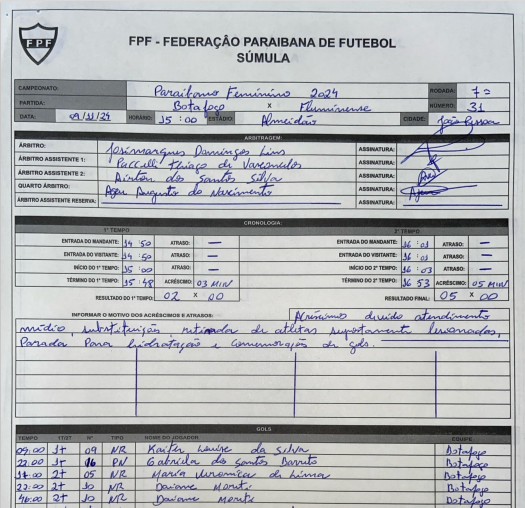 FPF
FPF - FEDERAÇÃO PARAIBANA DE FUTEBOL
SÚMULA
CAMPEONATO: Paraibano Feminino 2024 RODADA: 7ª
PARTIDA: Botafogo X Fluminense NÚMERO: 31
DATA: 09/11/24 HORÁRIO: 15:00 ESTÁDIO: Almeidão CIDADE: João Pessoa
ARBITRAGEM:
ÁRBITRO: Josimarques Domingos Lins ASSINATURA:
ÁRBITRO ASSISTENTE 1: Paccelli Thiago de Vasconcelos ASSINATURA:
ÁRBITRO ASSISTENTE 2: Airton dos Santos Silva ASSINATURA:
QUARTO ÁRBITRO: Augusto do Nascimento ASSINATURA:
ÁRBITRO ASSISTENTE RESERVA: ASSINATURA:
CRONOLOGIA:
1º TEMPO 2º TEMPO
ENTRADA DO MANDANTE: 14:50 ATRASO: — ENTRADA DO MANDANTE: 16:01 ATRASO: —
ENTRADA DO VISITANTE: 14:50 ATRASO: — ENTRADA DO VISITANTE: 16:01 ATRASO: —
INÍCIO DO 1º TEMPO: 15:00 ATRASO: — INÍCIO DO 2º TEMPO: 16:03 ATRASO: —
TÉRMINO DO 1º TEMPO: 15:48 ACRÉSCIMO: 03 MIN TÉRMINO DO 2º TEMPO: 16 53 ACRÉSCIMO: 05 MIN
RESULTADO DO 1º TEMPO: 02 X 00 RESULTADO FINAL: 05 X 00
INFORMAR O MOTIVO DOS ACRÉSCIMOS E ATRASOS: Acréscimo devido atendimento
médico, substituição, retirada de atletas supostamente lesionadas,
Parada para hidratação e comemoração de gols.
GOLS
TEMPO 1T/2T Nº TIPO NOME DO JOGADOR EQUIPE
09:00 1T 09 NR Louise da Silva Botafogo
22:00 1T 16 PN Gabriela dos Santos Barreto Botafogo
14:00 2T 05 NR Maria Veronica de Lima Botafogo
22:00 2T 10 NR Daiane Botafogo
46:00 2T 10 NR Daiane Botafogo